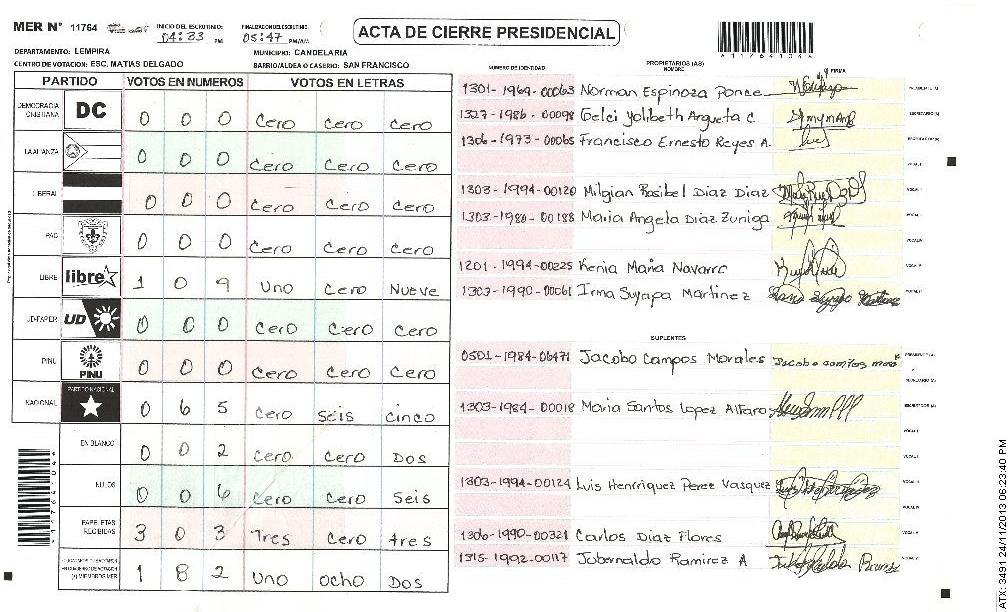 MER N° 11764 INICIO DEL ESCRUTINIO: 04:33 PM FINALIZACION DEL ESCRUTINIO: 05:47 PM/AM ACTA DE CIERRE PRESIDENCIAL
DEPARTAMENTO: LEMPIRA MUNICIPIO: CANDELARIA
CENTRO DE VOTACION: ESC. MATIAS DELGADO BARRIO/ALDEA O CASERIO: SAN FRANCISCO
PARTIDO VOTOS EN NUMEROS VOTOS EN LETRAS
DEMOCRACIA CRISTIANA DC 0 0 0 Cero Cero Cero
LA ALIANZA 0 0 0 Cero Cero Cero
LIBERAL 0 0 0 Cero Cero Cero
PAC 0 0 0 Cero Cero Cero
LIBRE libre 1 0 9 Uno Cero Nueve
UD-FAPER UD 0 0 0 Cero Cero Cero
PINU PINU 0 0 0 Cero Cero Cero
NACIONAL PARTIDO NACIONAL 0 6 5 Cero Seis Cinco
EN BLANCO 0 0 2 Cero Cero Dos
NULOS 0 0 6 Cero Cero Seis
PAPELETAS RECIBIDAS 3 0 3 Tres Cero tres
(+) MIEMBROS MER 1 8 2 Uno ocho Dos
NUMERO DE IDENTIDAD PROPIETARIOS (AS) NOMBRE FIRMA
1301-1969-00063 Norman Espinoza Ponce
1327-1986-00098 Gelci Yolibeth Argueta C
1306-1973-00065 Francisco Ernesto Reyes A.
1303-1994-00120 Milgian Rosibel Diaz Diaz
1303-1980-00188 Maria Angela Diaz Zuniga
1201-1994-00225 Kenia Maria Navarro
1303-1990-00061 Irma Suyapa Martinez
SUPLENTES
0501-1984-06471 Jacobo Campos Morales
1303-1984-00018 Maria Santos Lopez Alfaro
1303-1994-00124 Luis Henrriquez Perez Vasquez
1306-1990-00321 Carlos Diaz Flores
1315-1992-00117 Jobernaldo Ramirez A
ATX: 3491 24/11/2013 06:23:40 PM